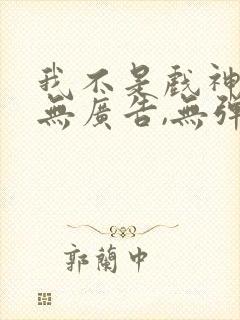 我不是戲神
無廣告,無彈
郭蘭中